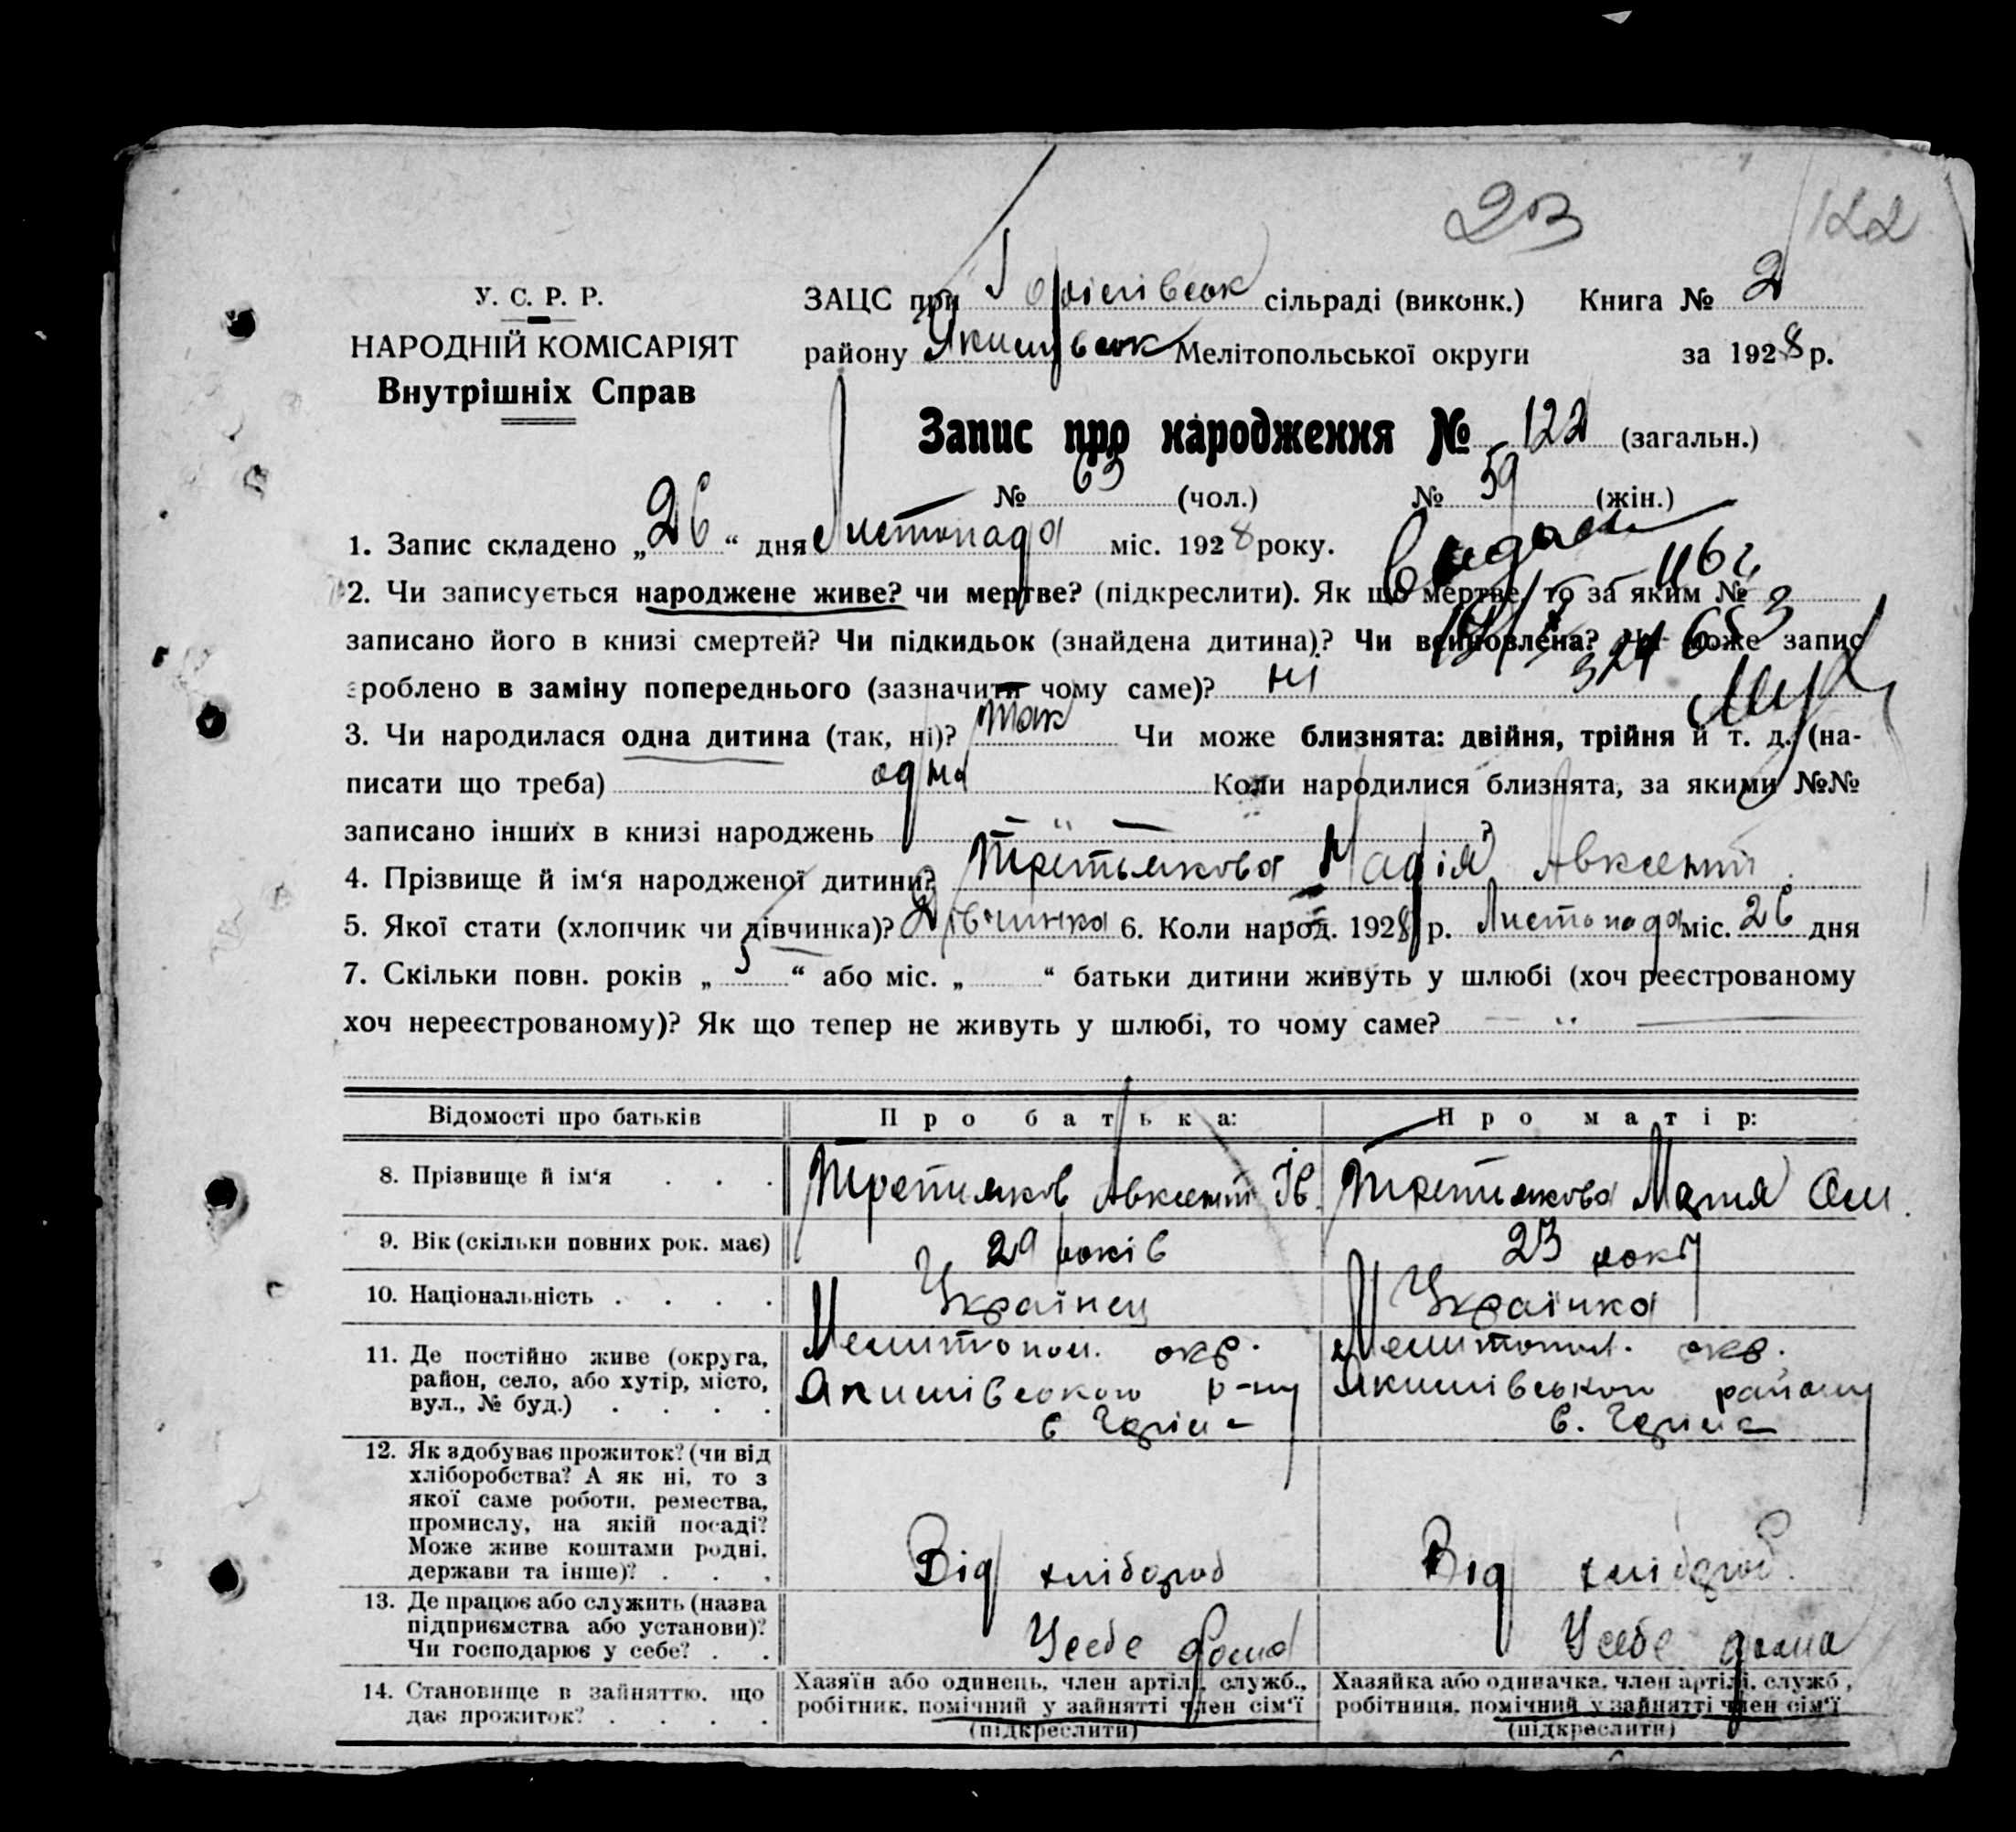 23 122
У. С. Р. Р.
НАРОДНІЙ КОМІСАРІЯТ
Внутрішніх Справ
ЗАЦС при сільраді (виконк.) Книга № 2
району Якимівськ Мелітопольської округи за 1928 р.
Запис про народження № 122 (загальн.)
№ 63 (чол.) № 59 (жін.)
1. Запис складено „26“ дня Листопада міс. 1928 року.
2. Чи записується народжене живе? чи мертве? (підкреслити). Як що мертве, то за яким №
записано його в книзі смертей? Чи підкидьок (знайдена дитина)? Чи всиновлена? Чи може запис
зроблено в заміну попереднього (зазначити чому саме)? ні
3. Чи народилася одна дитина (так, ні)? так Чи може близнята: двійня, трійня й т. д. (на-
писати що треба) одна Коли народилися близнята, за якими №№
записано інших в книзі народжень ?
4. Прізвище й ім‘я народженої дитини? Третьякова Марія Авксенті
5. Якої стати (хлопчик чи дівчинка)? Дівчинка 6. Коли народ. 1928 р. Листопада міс. 26 дня
7. Скільки повн. років „5“ або міс. „ “ батьки дитини живуть у шлюбі (хоч реєстрованому
хоч нереєстрованому)? Як що тепер не живуть у шлюбі, то чому саме?
Відомості про батьків Про батька: Про матір:
8. Прізвище й ім‘я Третьяков Авксенті Ів. Третьякова Марія
9. Вік (скільки повних рок. має) 29 років 23 роки
10. Національність Українец Українка
11. Де постійно живе (округа, район, село, або хутір, місто, вул., № буд.) Мелитопол. окр. Якимівського р-ну Мелитопол. окр. Якимівського району
12. Як здобуває прожиток? (чи від хліборобства? А як ні, то з якої саме роботи, ремества, промислу, на якій посаді? Може живе коштами родні, держави та інше)? Від хлібороб Від хлібороб.
13. Де працює або служить (назва підприємства або установи)? Чи господарює у себе? У себе дома У себе дома
14. Становище в зайняттю, що дає прожиток? Хазяїн або одинець, член артілі, служб., робітник, помічний у зайнятті член сім‘ї (підкреслити) Хазяйка або одиначка, член артілі, служб., робітниця, помічний у зайнятті член сім‘ї (підкреслити)